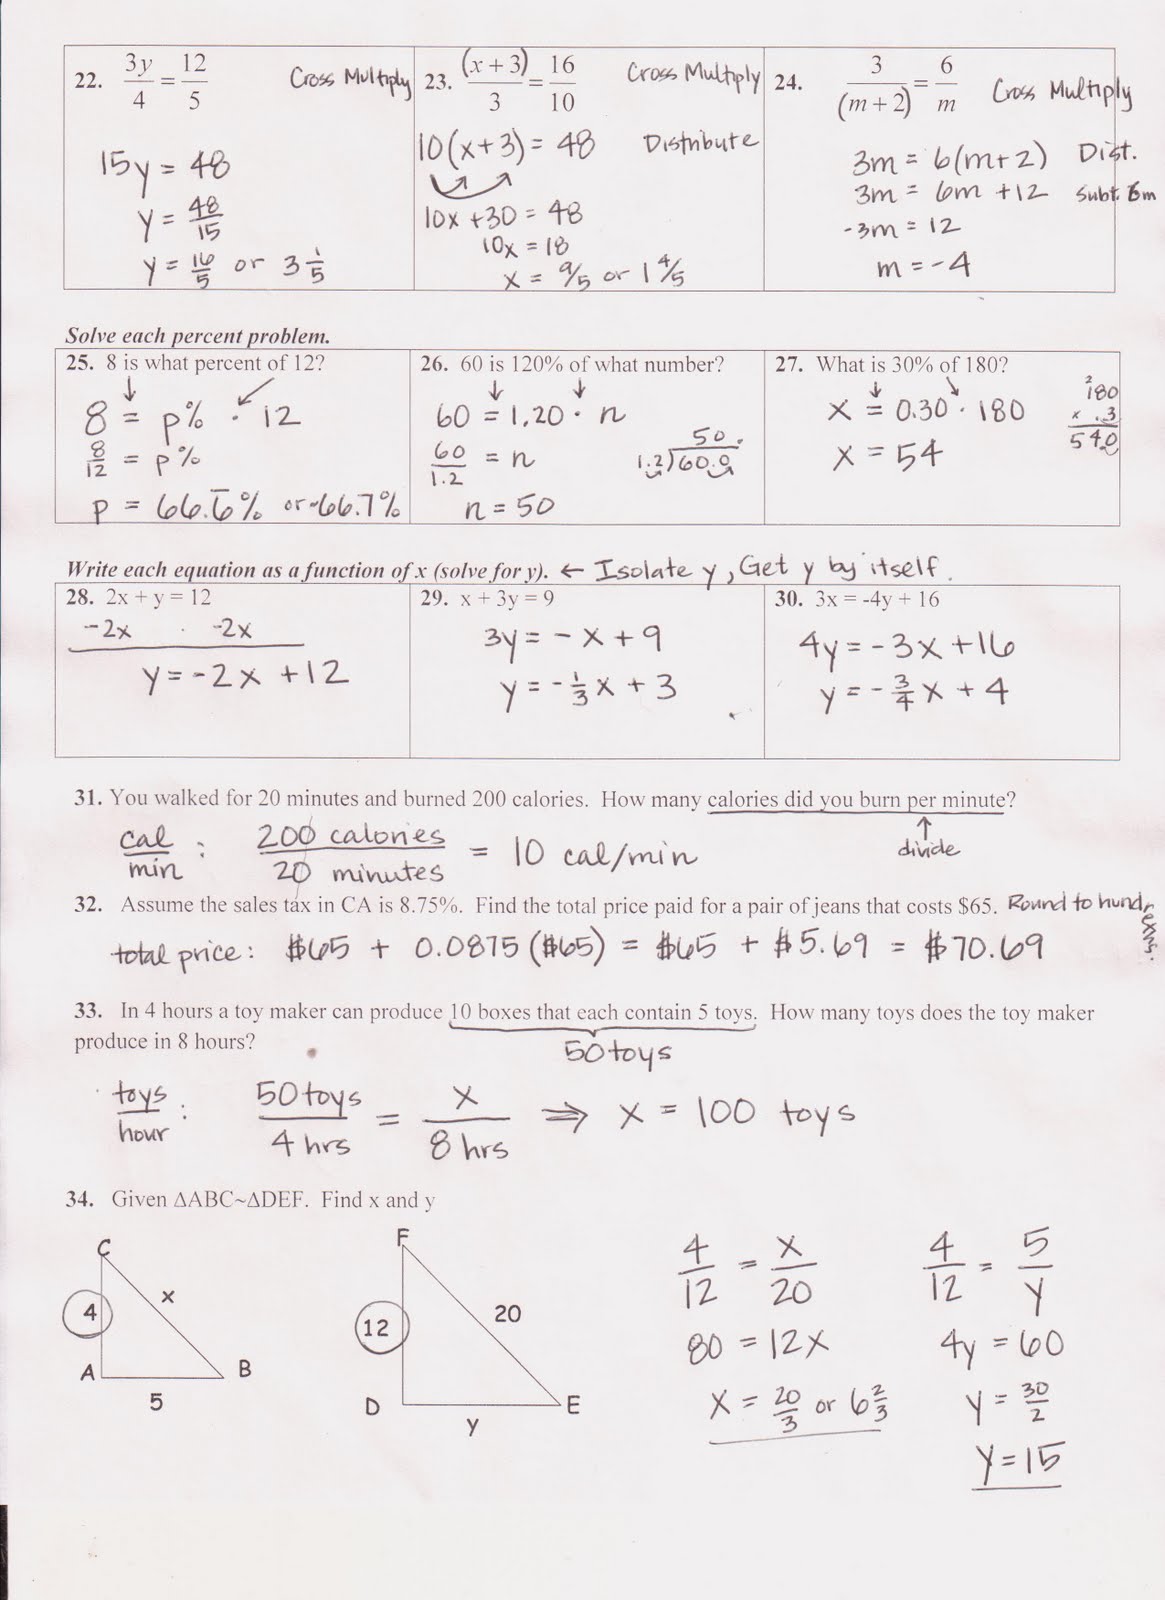 22. 3y/4 = 12/5 Cross Multiply
15y = 48
y = 48/15
y = 16/5 or 3 1/5
23. (x + 3)/3 = 16/10 Cross Multiply
10(x+3) = 48 Distribute
10x +30 = 48
10x = 18
x = 9/5 or 1 4/5
24. 3/(m + 2) = 6/m Cross Multiply
3m = 6(m+2) Dist.
3m = 6m +12 Subt. 6m
-3m = 12
m = -4
Solve each percent problem.
25. 8 is what percent of 12?
8 = p% · 12
8/12 = p%
p = 66.6̅% or ~66.7%
26. 60 is 120% of what number?
60 = 1.20 · n
60/1.2 = n
50.
1.2)60.0
n = 50
27. What is 30% of 180?
x = 0.30 · 180
x = 54
2
180
x .3
54.0
Write each equation as a function of x (solve for y). ← Isolate y, Get y by itself.
28. 2x + y = 12
-2x -2x
y = -2x +12
29. x + 3y = 9
3y = -x + 9
y = -1/3 x + 3
30. 3x = -4y + 16
4y = -3x +16
y = -3/4 x + 4
31. You walked for 20 minutes and burned 200 calories. How many calories did you burn per minute?
↑
divide
cal/min : 200 calories/20 minutes = 10 cal/min
32. Assume the sales tax in CA is 8.75%. Find the total price paid for a pair of jeans that costs $65. Round to hundredths.
total price: $65 + 0.0875 ($65) = $65 + $5.69 = $70.69
33. In 4 hours a toy maker can produce 10 boxes that each contain 5 toys. How many toys does the toy maker
produce in 8 hours?
50 toys
toys/hour : 50 toys/4 hrs = x/8 hrs ⇒ x = 100 toys
34. Given ΔABC~ΔDEF. Find x and y
C
4
x
A
B
5
F
12
20
D
E
y
4/12 = x/20
80 = 12x
x = 20/3 or 6 2/3
4/12 = 5/y
4y = 60
y = 30/2
y = 15